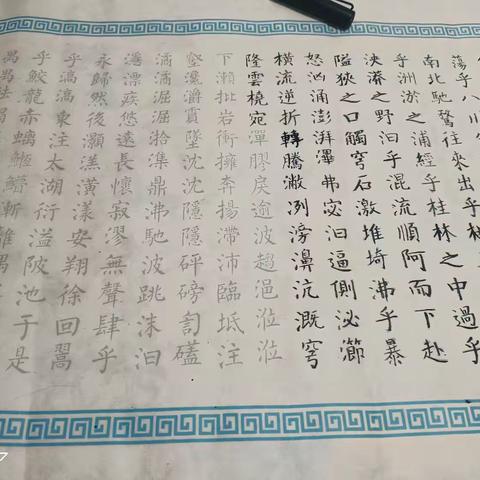 蕩乎八川
南北馳騖往來出乎
乎洲淤之浦經乎桂林之中過乎
泱漭之野汩乎混流順阿而下赴
隘狹之口觸穹石激堆埼沸乎暴
怒洶涌澎湃滭弗宓汩逼側泌瀄
橫流逆折轉騰潎洌滂濞沆溉穹
隆雲橈宛潬膠戾逾波趨浥涖涖
下瀨批岩衝擁奔揚滯沛臨坻注
壑瀺灂霣墜沈沈隱隱砰磅訇礚
潏潏淈淈湁潗鼎沸馳波跳沫汩
漂疾悠遠長懷寂漻無聲肆乎
永歸然後灝溔潢漾安翔徐回翯
乎滈滈東注太湖衍溢陂池于是
乎鮫龍赤螭漸離
禺禺